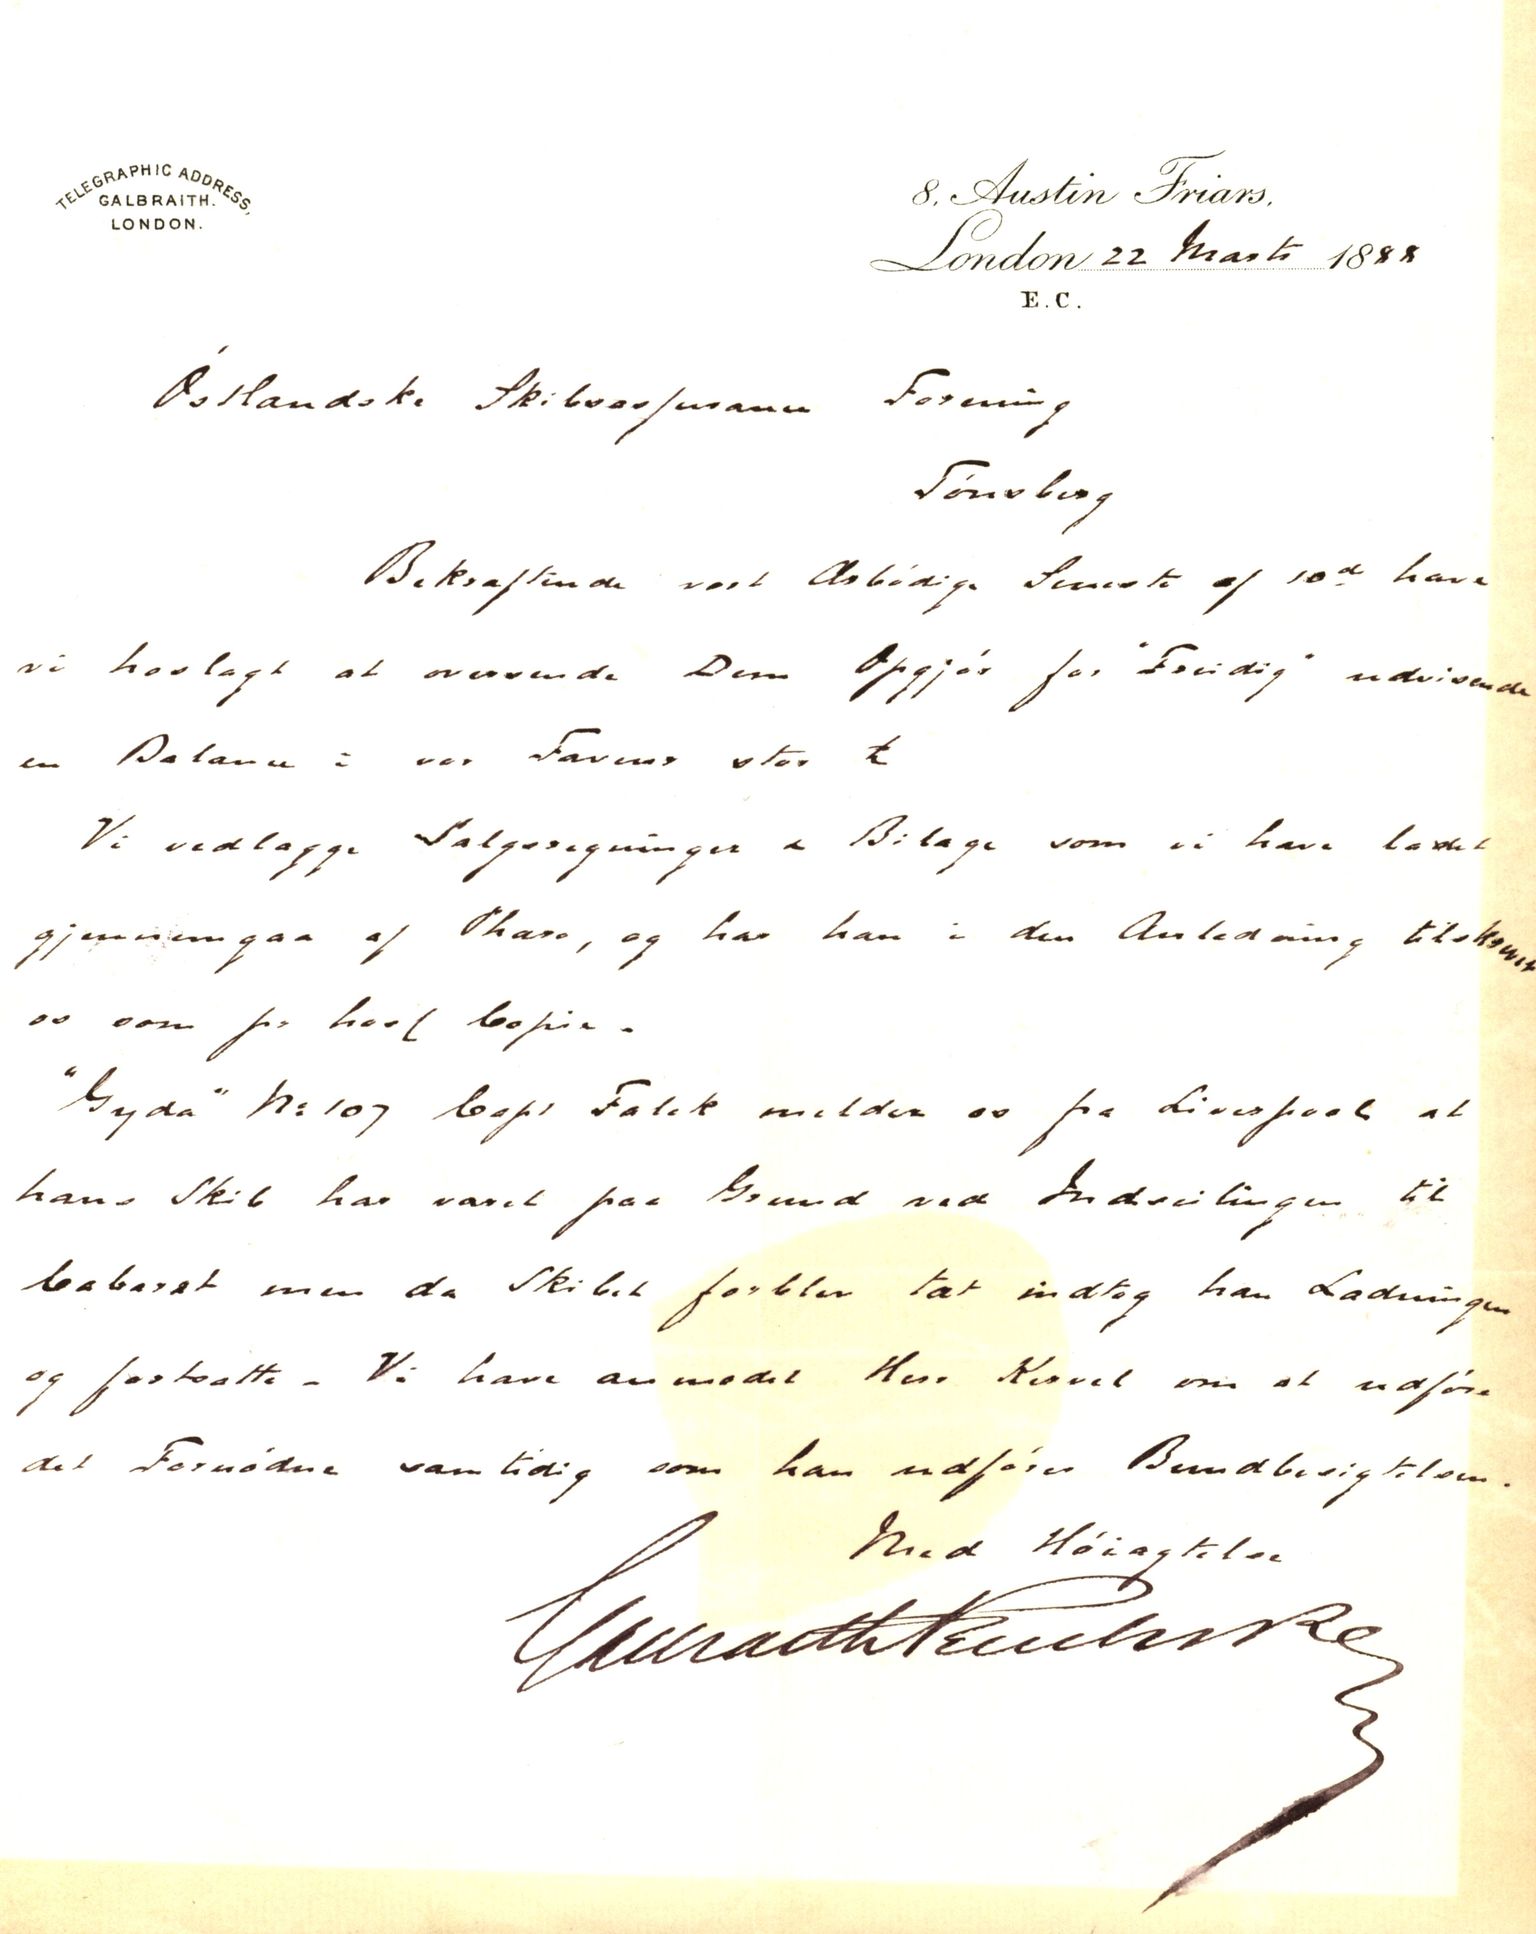 TELEGRAPHIC ADDRESS,
GALBRAITH.
LONDON.
8, Austin Friars,
London 22 Marts 1888
E.C.
Östlandske Skibsassurance Forening
Tönsberg
Bekræftende vort Ærbödige Seneste af 10d have
vi hoslagt at oversende Dem Opgjör for "Freidig" udvisende
en Balance i vor Faveur stor £
Vi vedlægge Salgsregninger & Bilage som vi have ladet
gjennemgaa af Phars, og har han i den Anledning tilskrevet
os som pr hosf Copie.
"Gyda" No 107 Capt Falck melder os fra Liverpool at
hans Skib har været paa Grund ved Indseilingen til
men da Skibet forblev tæt indtog han Ladningen
og fortsatte. Vi have anmodet Herr Kervel om at udföre
det Fornödne samtidig som han udförer Bundbesigtelsen.
Med Höiagtelse
Galbraith Pembroke